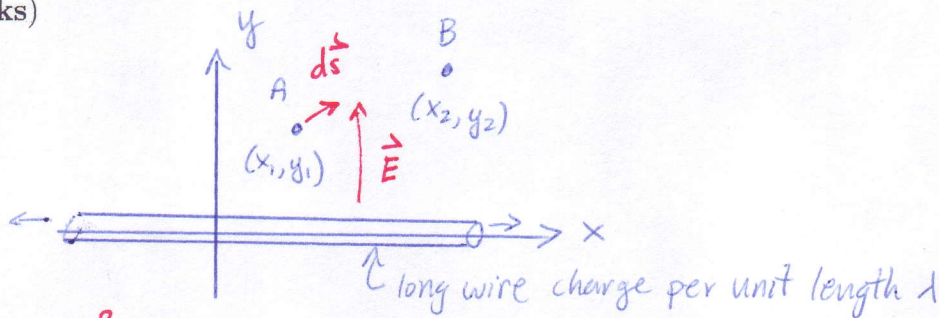 ks)
y
B
ds
A
(x₂, y₂)
(x₁, y₁)
E
x
long wire charge per unit length λ